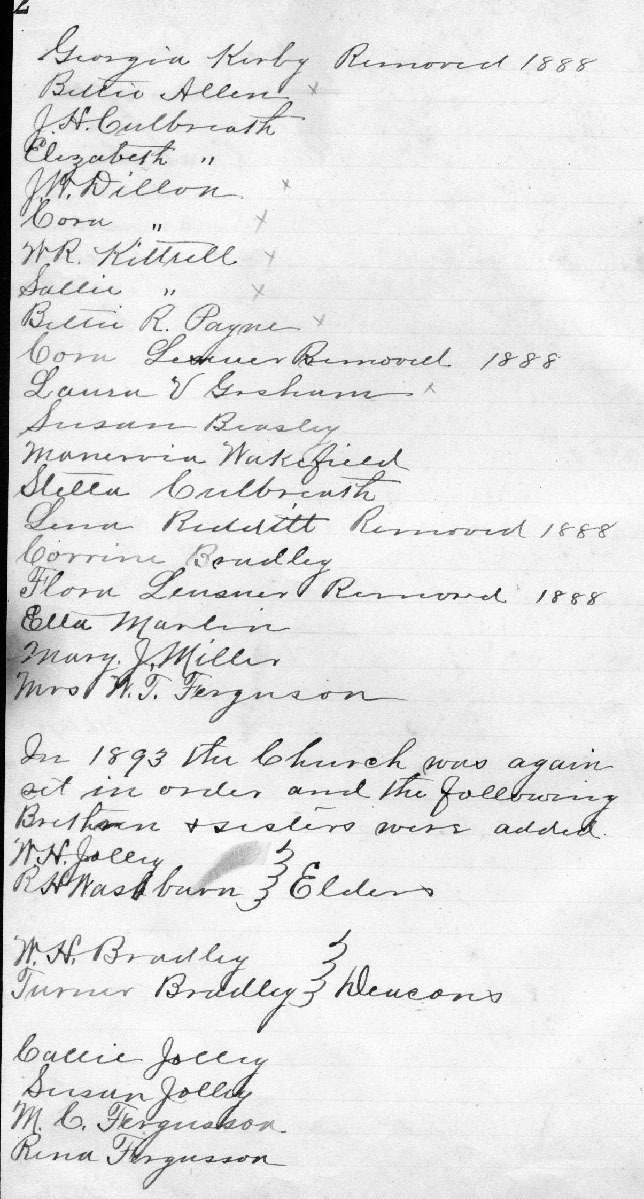 2
Georgia Kirby Removed 1888
Bettie Allen x
J.H. Culbreath
Elizabeth "
J.W. Dillon x
Cora " x
W.R. Kittrell x
Sallie " x
Bettie R. Payne x
Cora Removed 1888
Laura V Gresham x
Susan Beasley
Manervia Wakefield
Stella Culbreath
Lena Redditt Removed 1888
Corrine Bradley
Flora Leusner Removed 1888
Etta Marlin
Mary. J. Miller
Mrs W.T. Ferguson
In 1893 the Church was again
set in order and the following
Brethren + sisters were added.
W.H. Jolley
R.H Washburn } Elders
W.H. Bradley
Turner Bradley } Deacons
Callie Jolley
Susan Jolley
M.C. Fergusson
Rena Fergusson